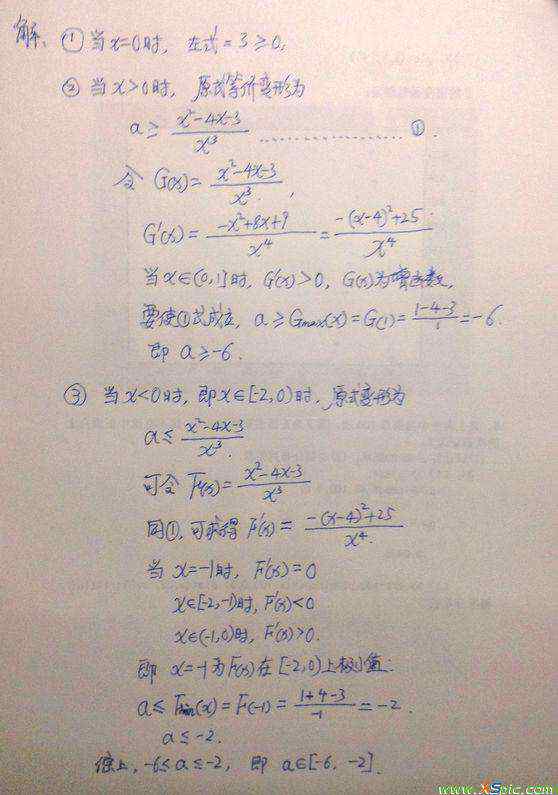 解: ① 当 x=0 时, 左式 = 3 ≥ 0.
② 当 x>0 时, 原式等价变形为
a ≥ (x²-4x-3)/x³ ………………… ①.
令 G(x) = (x²-4x-3)/x³,
G'(x) = (-x²+8x+9)/x⁴ = (-(x-4)²+25)/x⁴.
当 x∈(0,1] 时, G'(x)>0, G(x)为增函数,
要使①式成立, a ≥ Gmax(x) = G(1) = (1-4-3)/1 = -6.
即 a ≥ -6.
③ 当 x<0 时, 即 x∈[-2,0) 时, 原式变形为
a ≤ (x²-4x-3)/x³.
可令 F(x) = (x²-4x-3)/x³
同①, 可求得 F'(x) = (-(x-4)²+25)/x⁴.
当 x=-1 时, F'(x)=0
x∈[-2,-1) 时, F'(x)<0
x∈(-1,0) 时, F'(x)>0.
即 x=-1 为 F(x) 在 [-2,0) 上极小值.
a ≤ Fmin(x) = F(-1) = (1+4-3)/-1 = -2.
a ≤ -2.
综上, -6 ≤ a ≤ -2, 即 a∈[-6, -2].
www.XSpic.com